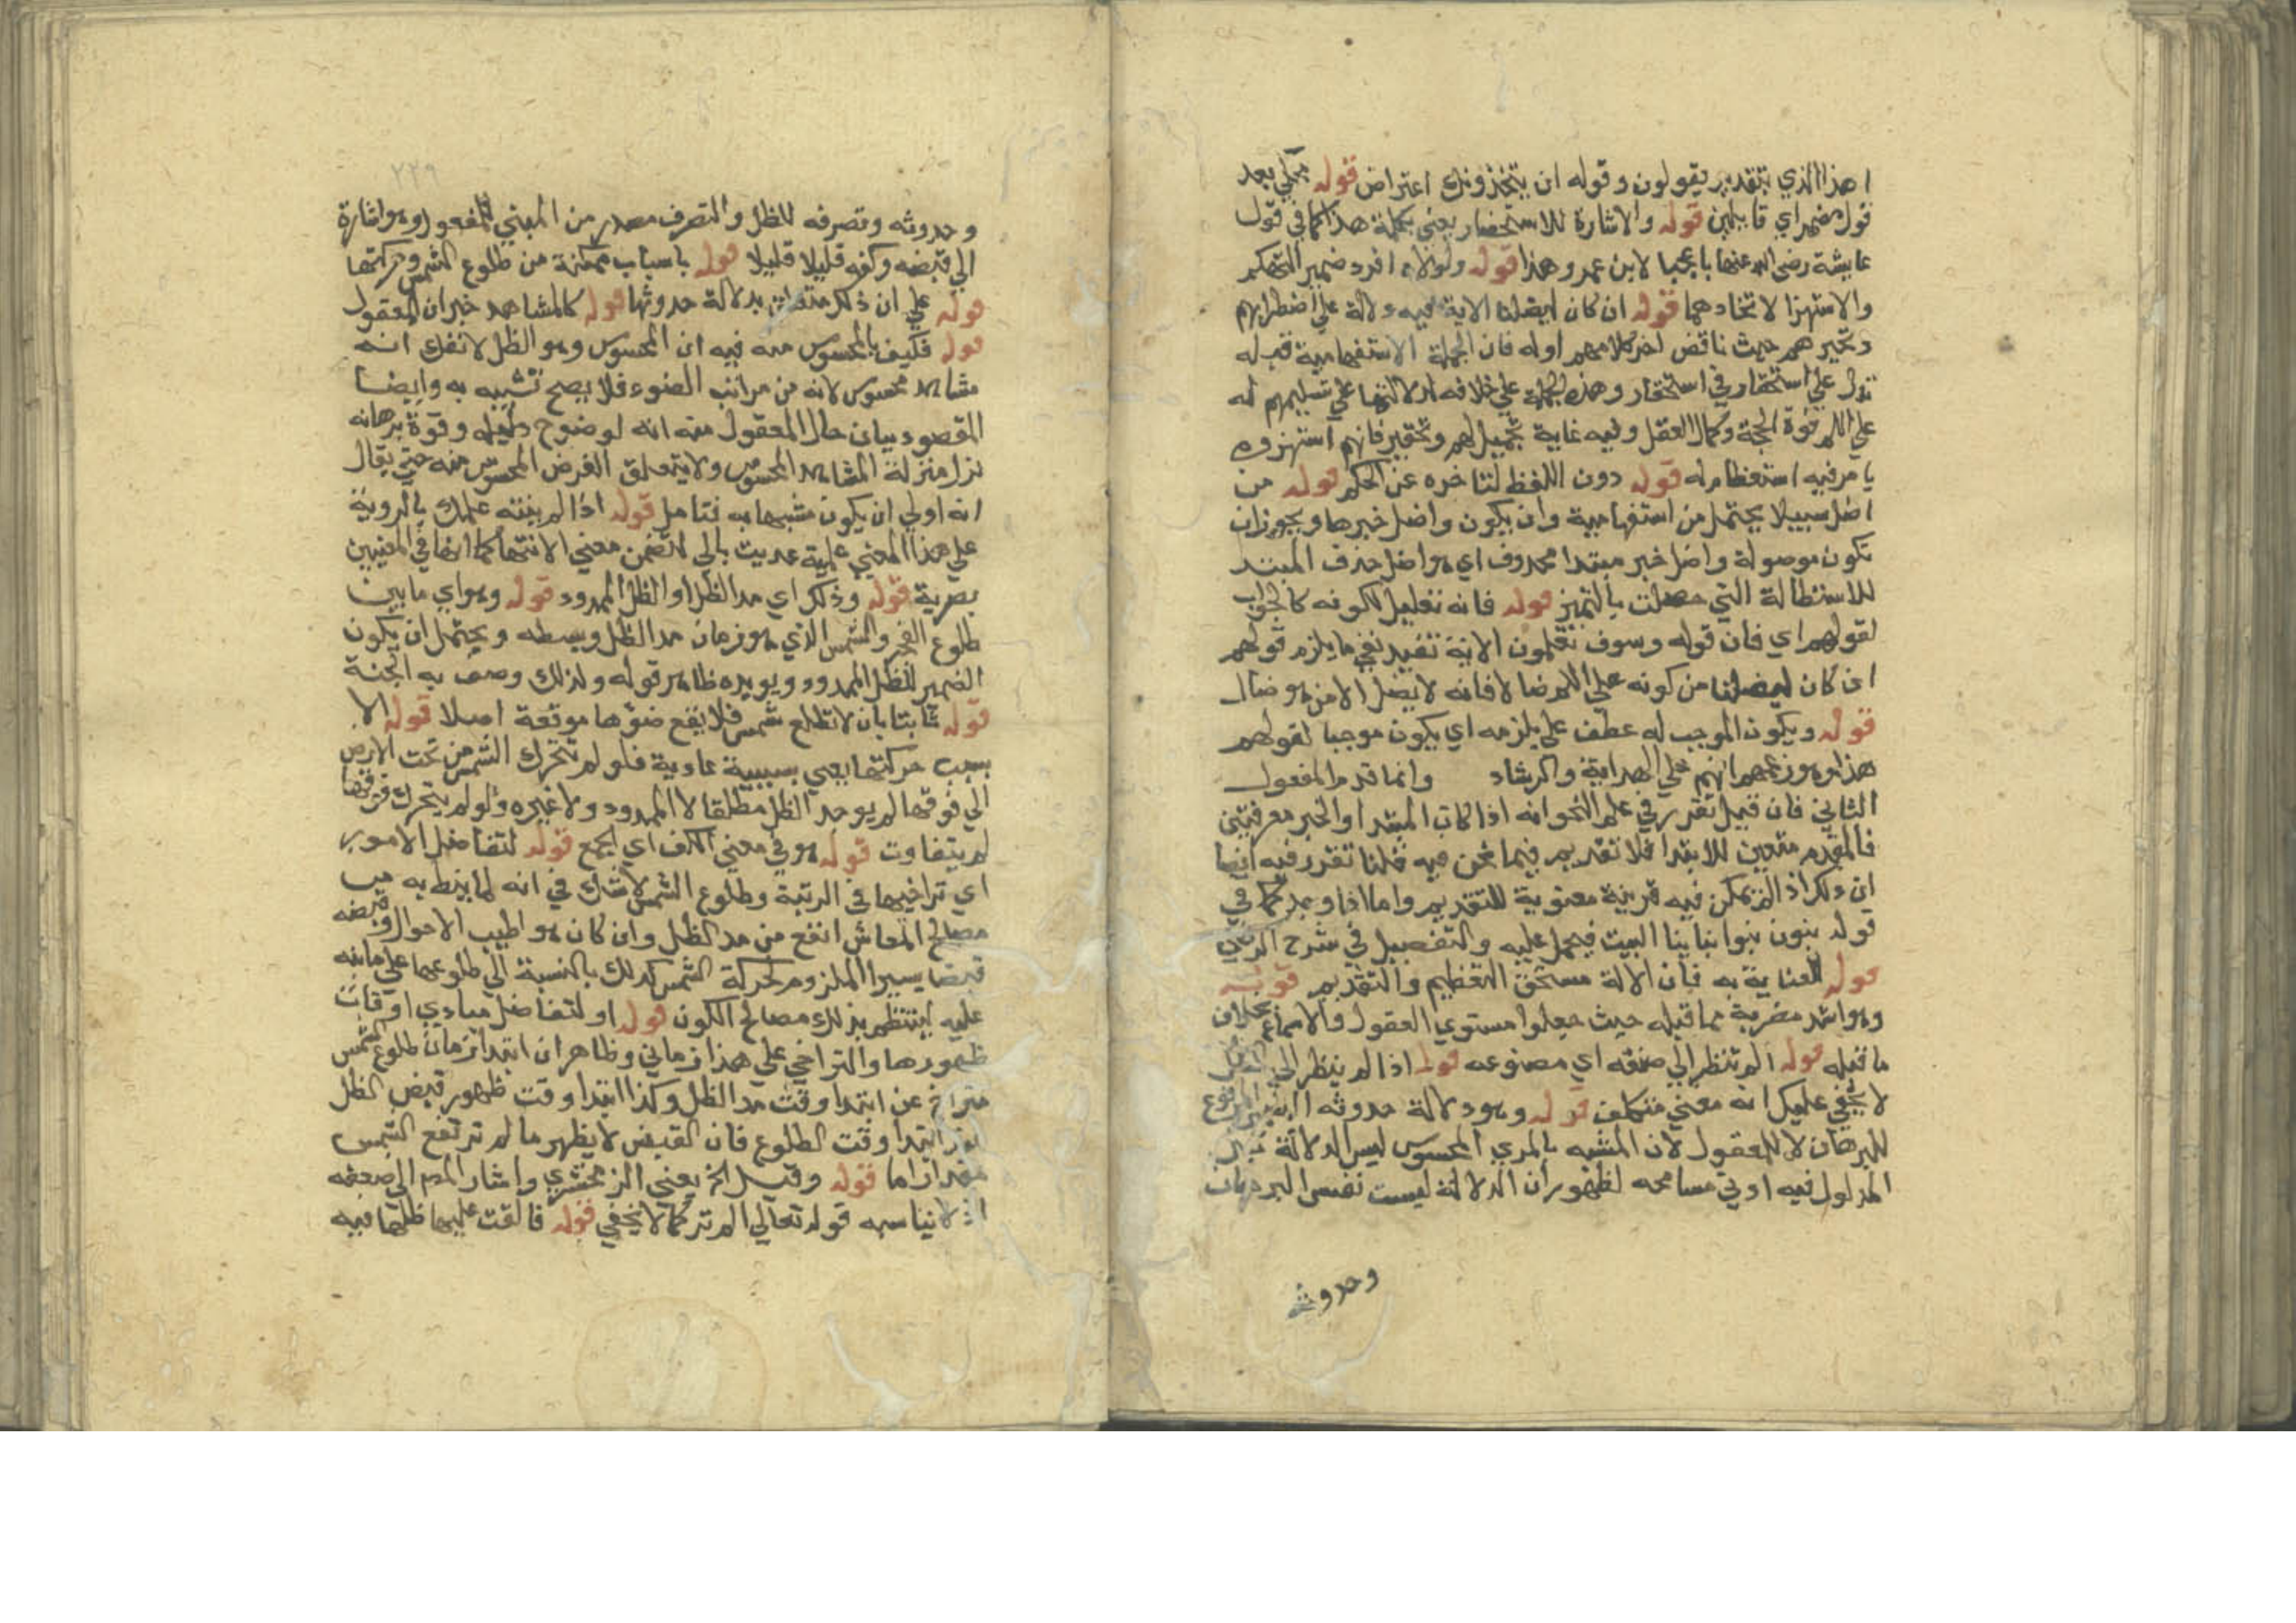 اهذا الذي بتقدير يقولون وقوله ان يتخذونك اعتراض قوله محكي بعد
قول مضمر اي قايلين قوله والاشارة للاستحقار يعني بكلمة هذا كما في قول
عايشة رضي الله عنها يا عجبا لابن عمرو هذا قوله ولولاه افرد ضمير التهكم
والاستهزا لاتحادهما قوله ان كان ليضلنا الاية فيه دلالة علي اضطرابهم
وتحيرهم حيث ناقض اخر كلامهم اوله فان الجملة الاستفهامية قبله
تدل علي استحقار في استحقار وهذه الجملة علي خلافه لدلالتها علي تسليمهم له
عليه السلام قوة الحجة وكمال العقل وفيه غاية تجهيل لهم وتحقير فانهم استهزوه
يا مر فيه استعظام له قوله دون اللفظ لتاخره عن الحكم قوله من
اضل سبيلا يحتمل من استفهامية وان يكون واضل خبرها ويجوز ان
تكون موصولة واضل خبر مبتدا محذوف اي هو اضل حذف المبتدا
للاستطالة التي حصلت بالتميز قوله فانه تعليل لكونه كالجواب
لقولهم اي فان قوله وسوف تعلمون الاية تفيد نفي ما يلزم قولهم
ان كان ليضلنا من كونه عليه السلام ضالا فانه لا يضل الا من هو ضال
قوله ويكون الموجب له عطف علي يلزمه اي يكون موجبا لقولهم
هذا وهو زعمهم انهم علي الهداية والرشاد وانما قدم المفعول
الثاني فان قيل تقرر في علم النحو انه اذا كان المبتدا والخبر معرفتين
فالمقدم متعين للابتدا فلا تقديم فيما نحن فيه قلنا تقرر فيه ايضا
ان ذلك اذا لم تمكن فيه قرينة معنوية للتقديم واما اذا وجد كما في
قوله بنون بنوا بناينا البيت فيحمل عليه والتفصيل في شرح الرضي
قوله للعناية به فان الالة مستحق التعظيم والتقديم قوله
وهو اشد مضربة مما قبله حيث جعلوا مستوي العقول والاسماع بخلاف
ما قبله قوله الم تنظر الي صنعه اي مصنوعه قوله اذا لم ينظر الي
لا يخفي عليك انه معني متكلف قوله وهو دلالة حدوثه
للبرهان لا للمعقول لان المشبه بالمري المحسوس ليس الدلالة
المدلول فيه ادني مسامحه لظهور ان الدلالة ليست نفس البرهان
وحدوثه
٢٢٩
وحدوثه وتصرفه للظل والتصرف مصدر من المبني للمفعول وهو اشارة
الي قبضه وكفه قليلا قليلا قوله باسباب ممكنة من طلوع الشمس وحركتها
قوله علي ان ذلك متعلق بدلالة حدوثها قوله كالمشاهد خبر ان المعقول
قوله فكيف بالمحسوس منه فيه ان المحسوس وهو الظل لا تفك انه
مشاهد محسوس لانه من مراتب الضوء فلا يصح تشبيه به وايضا
المقصود بيان حال المعقول منه انه لوضوح دليله وقوة برهانه
نزل منزلة المشاهد المحسوس ولا يتعلق الغرض المحسوس منه حتي يقال
انه اولي ان يكون مشبها به فتامل قوله اذا لم ينته علمك بالروية
علي هذا المعني علمية عديت بالي لتضمن معني الانتها كما انها في المعنيين
بصرية قوله وذلك اي مد الظل او الظل الممدود قوله وهو اي ما بين
طلوع الفجر والشمس الذي هو زمان مد الظل وبسطه ويحتمل ان يكون
الضمير للظل الممدود ويويده ظاهر قوله ولذلك وصف به الجنة
قوله ثابتا بان لا تطلع شمس فلا يقع ضوها موقعة اصلا قوله الا
بسبب حركتها يعني بسببية عادية فلو لم تتحرك الشمس من تحت الارض
الي فوقها لم يوجد الظل مطلقا لا الممدود ولا غيره ولو لم يتحرك فوقها
لم يتفاوت قوله هو في معني الكف اي الجمع قوله لتفاضل الامور
اي تراخيها في الرتبة وطلوع الشمس لا شك في انه لما ينط به من
مصالح المعاش انفع من مد الظل وان كان هو اطيب الاحوال وقبضه
قبضا يسيرا الملزوم لحركة الشمس كذلك بالنسبة الي طلوعها علي ما نبه
عليه لينتظم بذلك مصالح الكون قوله او لتفاضل مبادي اوقات
ظهورها والتراخي علي هذا زماني وظاهر ان ابتدا زمان طلوع الشمس
متراخ عن ابتدا وقت مد الظل وكذا ابتدا وقت ظهور قبض الظل
ابتدا وقت الطلوع فان القبض لا يظهر ما لم ترتفع الشمس
مقدارا ما قوله وقيل الخ يعني الزمخشري واشار المص الي ضعفه
اذ لا يناسبه قوله تعالي الم تر كما لا يخفي قوله فالقت عليها ظلها فيه